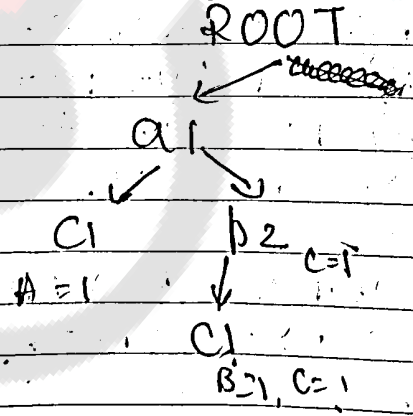 ROOT
a1
C1 b2 C=1
A = 1
C1
B=1, C=1